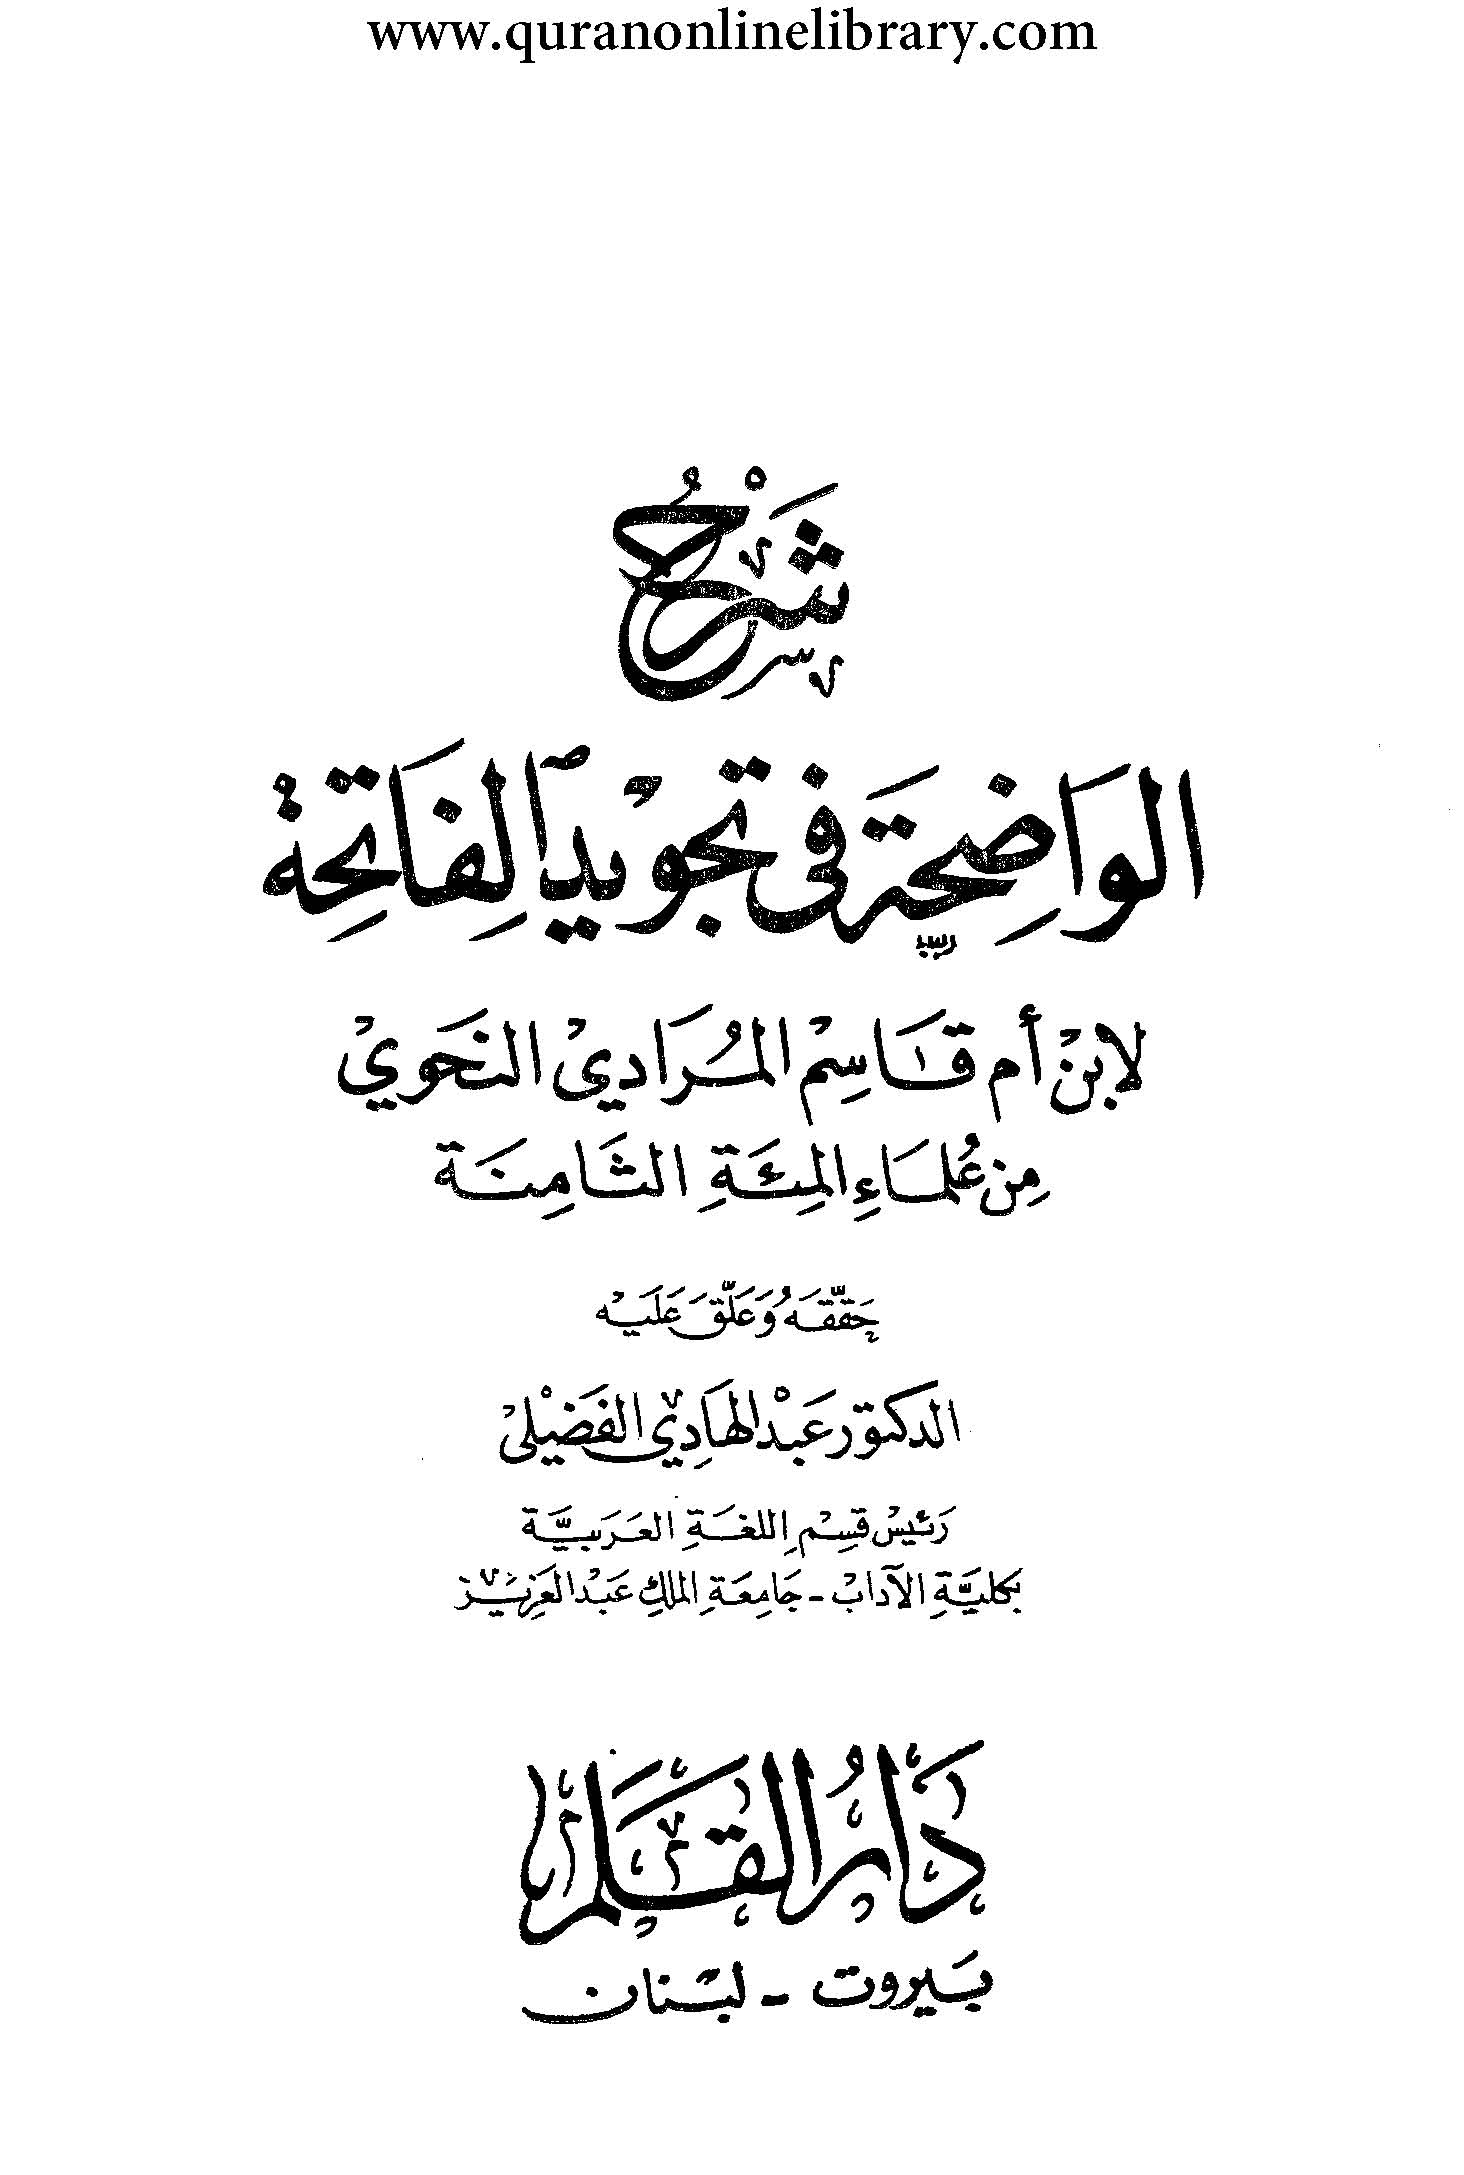 www.quranonlinelibrary.com
شَرْحُ
الوَاضِحَة فِي تَجْوِيد الفَاتِحَة
لابن أم قَاسِم المُرَادي النحوي
مِن عُلمَاءِ المِئَةِ الثَامِنَة
حَقَّقَهُ وَعَلَّقَ عَلَيْه
الدكتور عَبْد الهَادِي الفَضْيلي
رَئيسْ قسِمْ اللغَةِ العَرَبيَّة
بكليَّةِ الآدابْ - جَامِعَةِ الملكِ عَبْد العَزيْز
دَارُ القَلَم
بَيروت - لبْنان